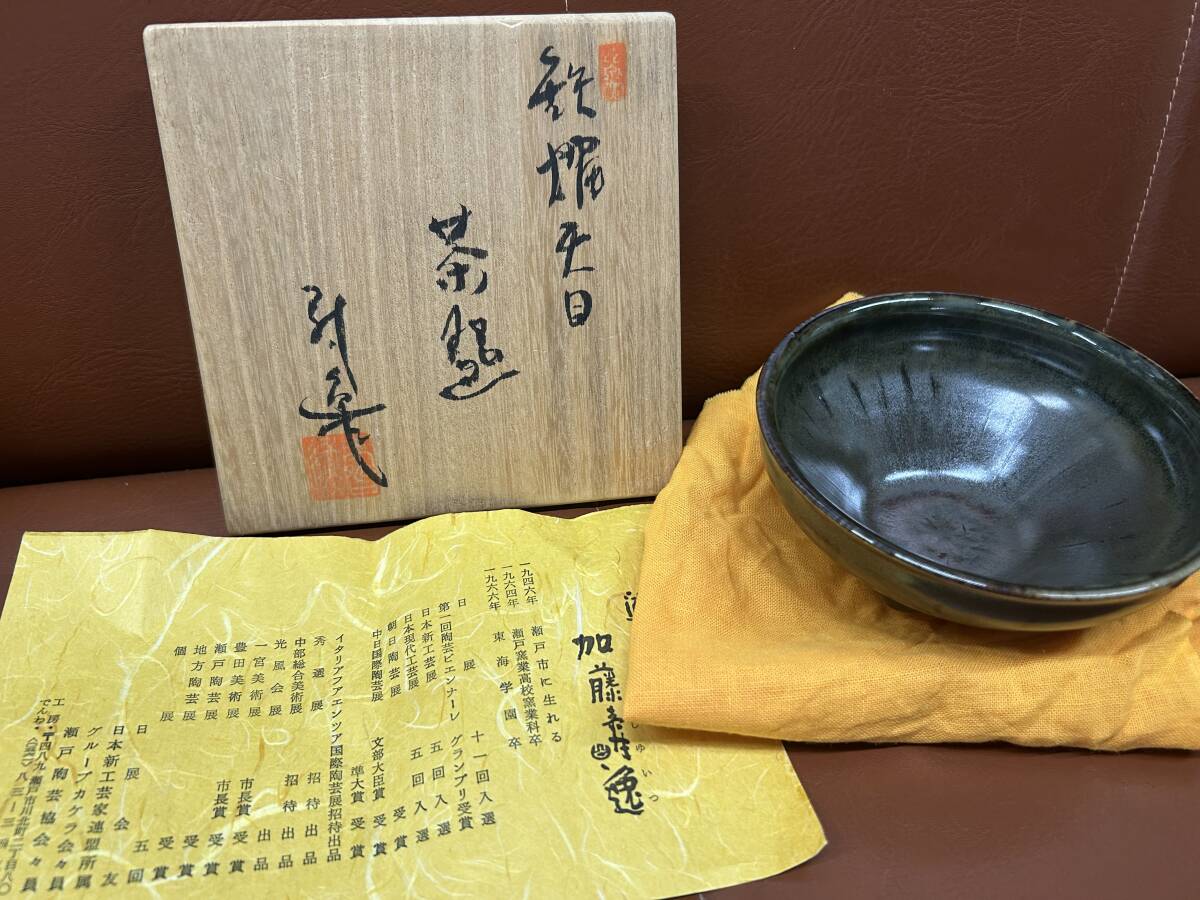 鉄耀天目
茶盌
加藤寿逸
しゅいつ
一九四六年 瀬戸市に生れる
一九六四年 瀬戸窯業高校窯業科卒
一九六六年 東海学園卒
日展 十一回入選
第一回陶芸ビエンナーレ グランプリ受賞
日本新工芸展 五回入選
日本現代工芸展 五回入選
朝日陶芸展 受賞
中日国際陶芸展 文部大臣賞 準大賞 受賞
イタリアファエンツア国際陶芸展招待出品
秀選展 招待出品
中部総合美術展 招待出品
光風会展
一宮美術展 市長賞 受賞
豊田美術展 市長賞 受賞
瀬戸陶芸展 受賞
地方陶芸展 受賞
個展 五回
日展会友
日本新工芸家連盟所属
グループカケラ会々員
瀬戸陶芸協会々員
工房・〒四八九 瀬戸市川北町二丁目八〇
でんわ・